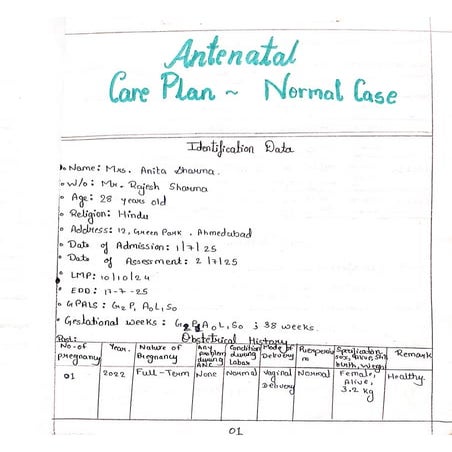 Antenatal
Care Plan ~ Normal Case
Identification Data
Name: Mrs. Anita Sharma.
W/o: Mr. Rajesh Sharma
Age: 28 years old
Religion: Hindu
Address: 12, Green Park, Ahmedabad
Date of Admission: 1/7/25
Date of Assessment: 2/7/25
LMP: 10/10/24
EDD: 17-7-25
GPALS: G2P1 A0L1S0
Gestational weeks: G2P1A0L1S0; 38 weeks.
Obstetrical History
Past:
No. of pregnancy | Year. | Nature of Pregnancy | Any problem during ANC | Condition during labor | Mode of Delivery | | sex, alive, still birth, | Remark
01 | 2022 | Full-Term | None | Normal | Vaginal Delivery | Normal | Female, Alive, 3.2 kg | Healthy.
01